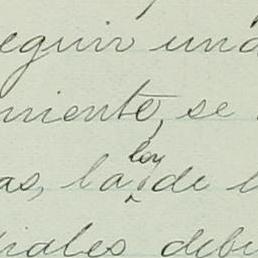 eguir una
niente, se
as, la ley de l
iales debi